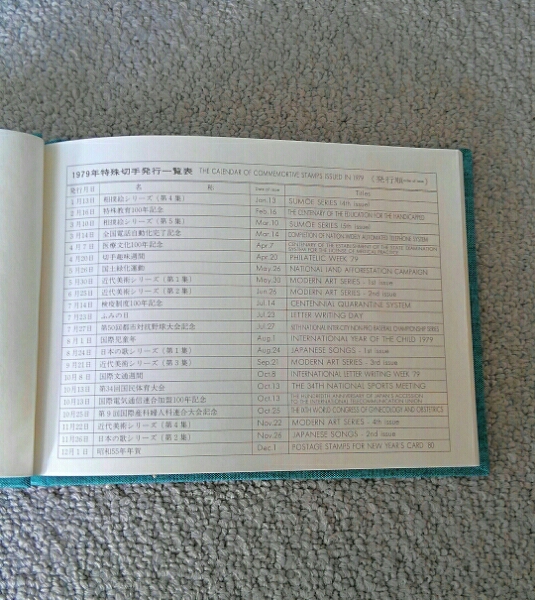 1979年特殊切手発行一覧表 THE CALENDAR OF COMMEMORATIVE STAMPS ISSUED IN 1979 (発行順
発行月日 名 称 Date of issue Titles
1月13日 相撲絵シリーズ（第4集） Jan.13 SUMOE SERIES (4th issue)
2月16日 特殊教育100年記念 Feb.16 THE CENTENARY OF THE EDUCATION FOR THE HANDICAPPED
3月10日 相撲絵シリーズ（第5集） Mar.10 SUMOE SERIES (5th issue)
3月14日 全国電話自動化完了記念 Mar.14 COMPLETION OF NATION-WIDELY AUTOMATED TELEPHONE SYSTEM
4月7日 医療文化100年記念 Apr.7 CENTENARY OF THE ESTABLISHMENT OF THE STATE EXAMINATION
4月20日 切手趣味週間 Apr.20 PHILATELIC WEEK '79
5月26日 国土緑化運動 May.26 NATIONAL LAND AFFORESTATION CAMPAIGN
5月30日 近代美術シリーズ（第1集） May.30 MODERN ART SERIES - 1st issue
6月25日 近代美術シリーズ（第2集） Jun.25 MODERN ART SERIES - 2nd issue
7月14日 検疫制度100年記念 Jul.14 CENTENNIAL QUARANTINE SYSTEM
7月23日 ふみの日 Jul.23 LETTER WRITING DAY
7月27日 第50回都市対抗野球大会記念 Jul.27 50TH NATIONAL INTER-CITY NON-PRO BASEBALL CHAMPIONSHIP SERIES
8月1日 国際児童年 Aug.1 INTERNATIONAL YEAR OF THE CHILD 1979
8月24日 日本の歌シリーズ（第1集） Aug.24 JAPANESE SONGS - 1st issue
9月21日 近代美術シリーズ（第3集） Sep.21 MODERN ART SERIES - 3rd issue
10月8日 国際文通週間 Oct.8 INTERNATIONAL LETTER WRITING WEEK '79
10月13日 第34回国民体育大会 Oct.13 THE 34TH NATIONAL SPORTS MEETING
10月13日 国際電気通信連合加盟100年記念 Oct.13 THE HUNDREDTH ANNIVERSARY OF JAPAN'S ACCESSION TO THE INTERNATIONAL TELECOMMUNICATION UNION
10月25日 第9回国際産科婦人科連合大会記念 Oct.25 THE IXTH WORLD CONGRESS OF GYNECOLOGY AND OBSTETRICS
11月22日 近代美術シリーズ（第4集） Nov.22 MODERN ART SERIES - 4th issue
11月26日 日本の歌シリーズ（第2集） Nov.26 JAPANESE SONGS - 2nd issue
12月1日 昭和55年年賀 Dec.1 POSTAGE STAMPS FOR NEW YEAR'S CARD '80